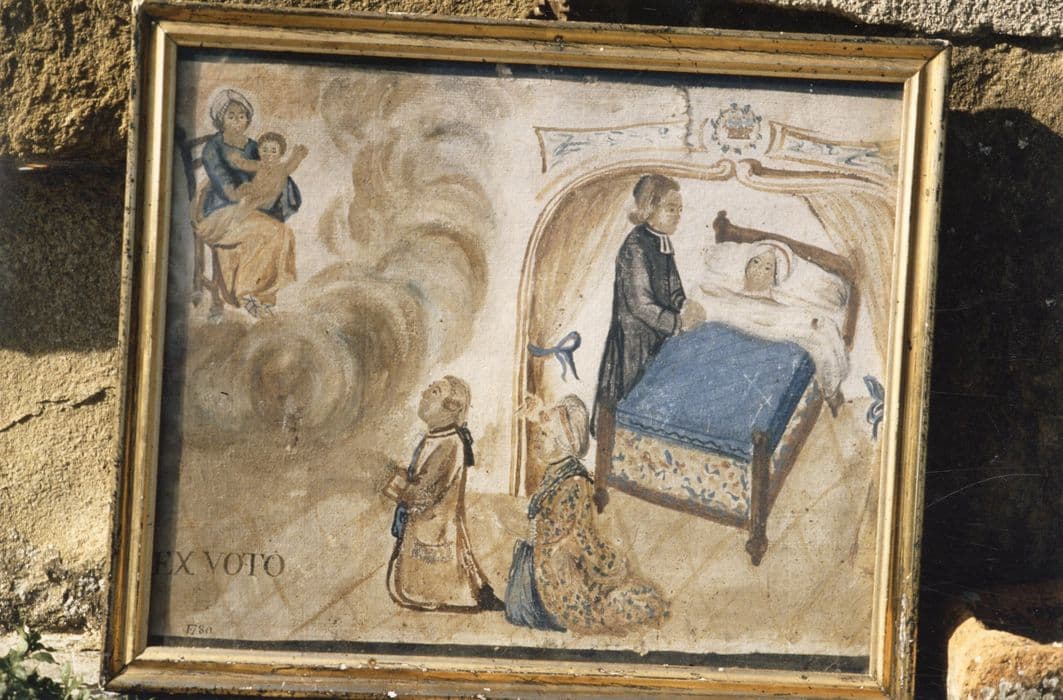 EX VOTO
1780